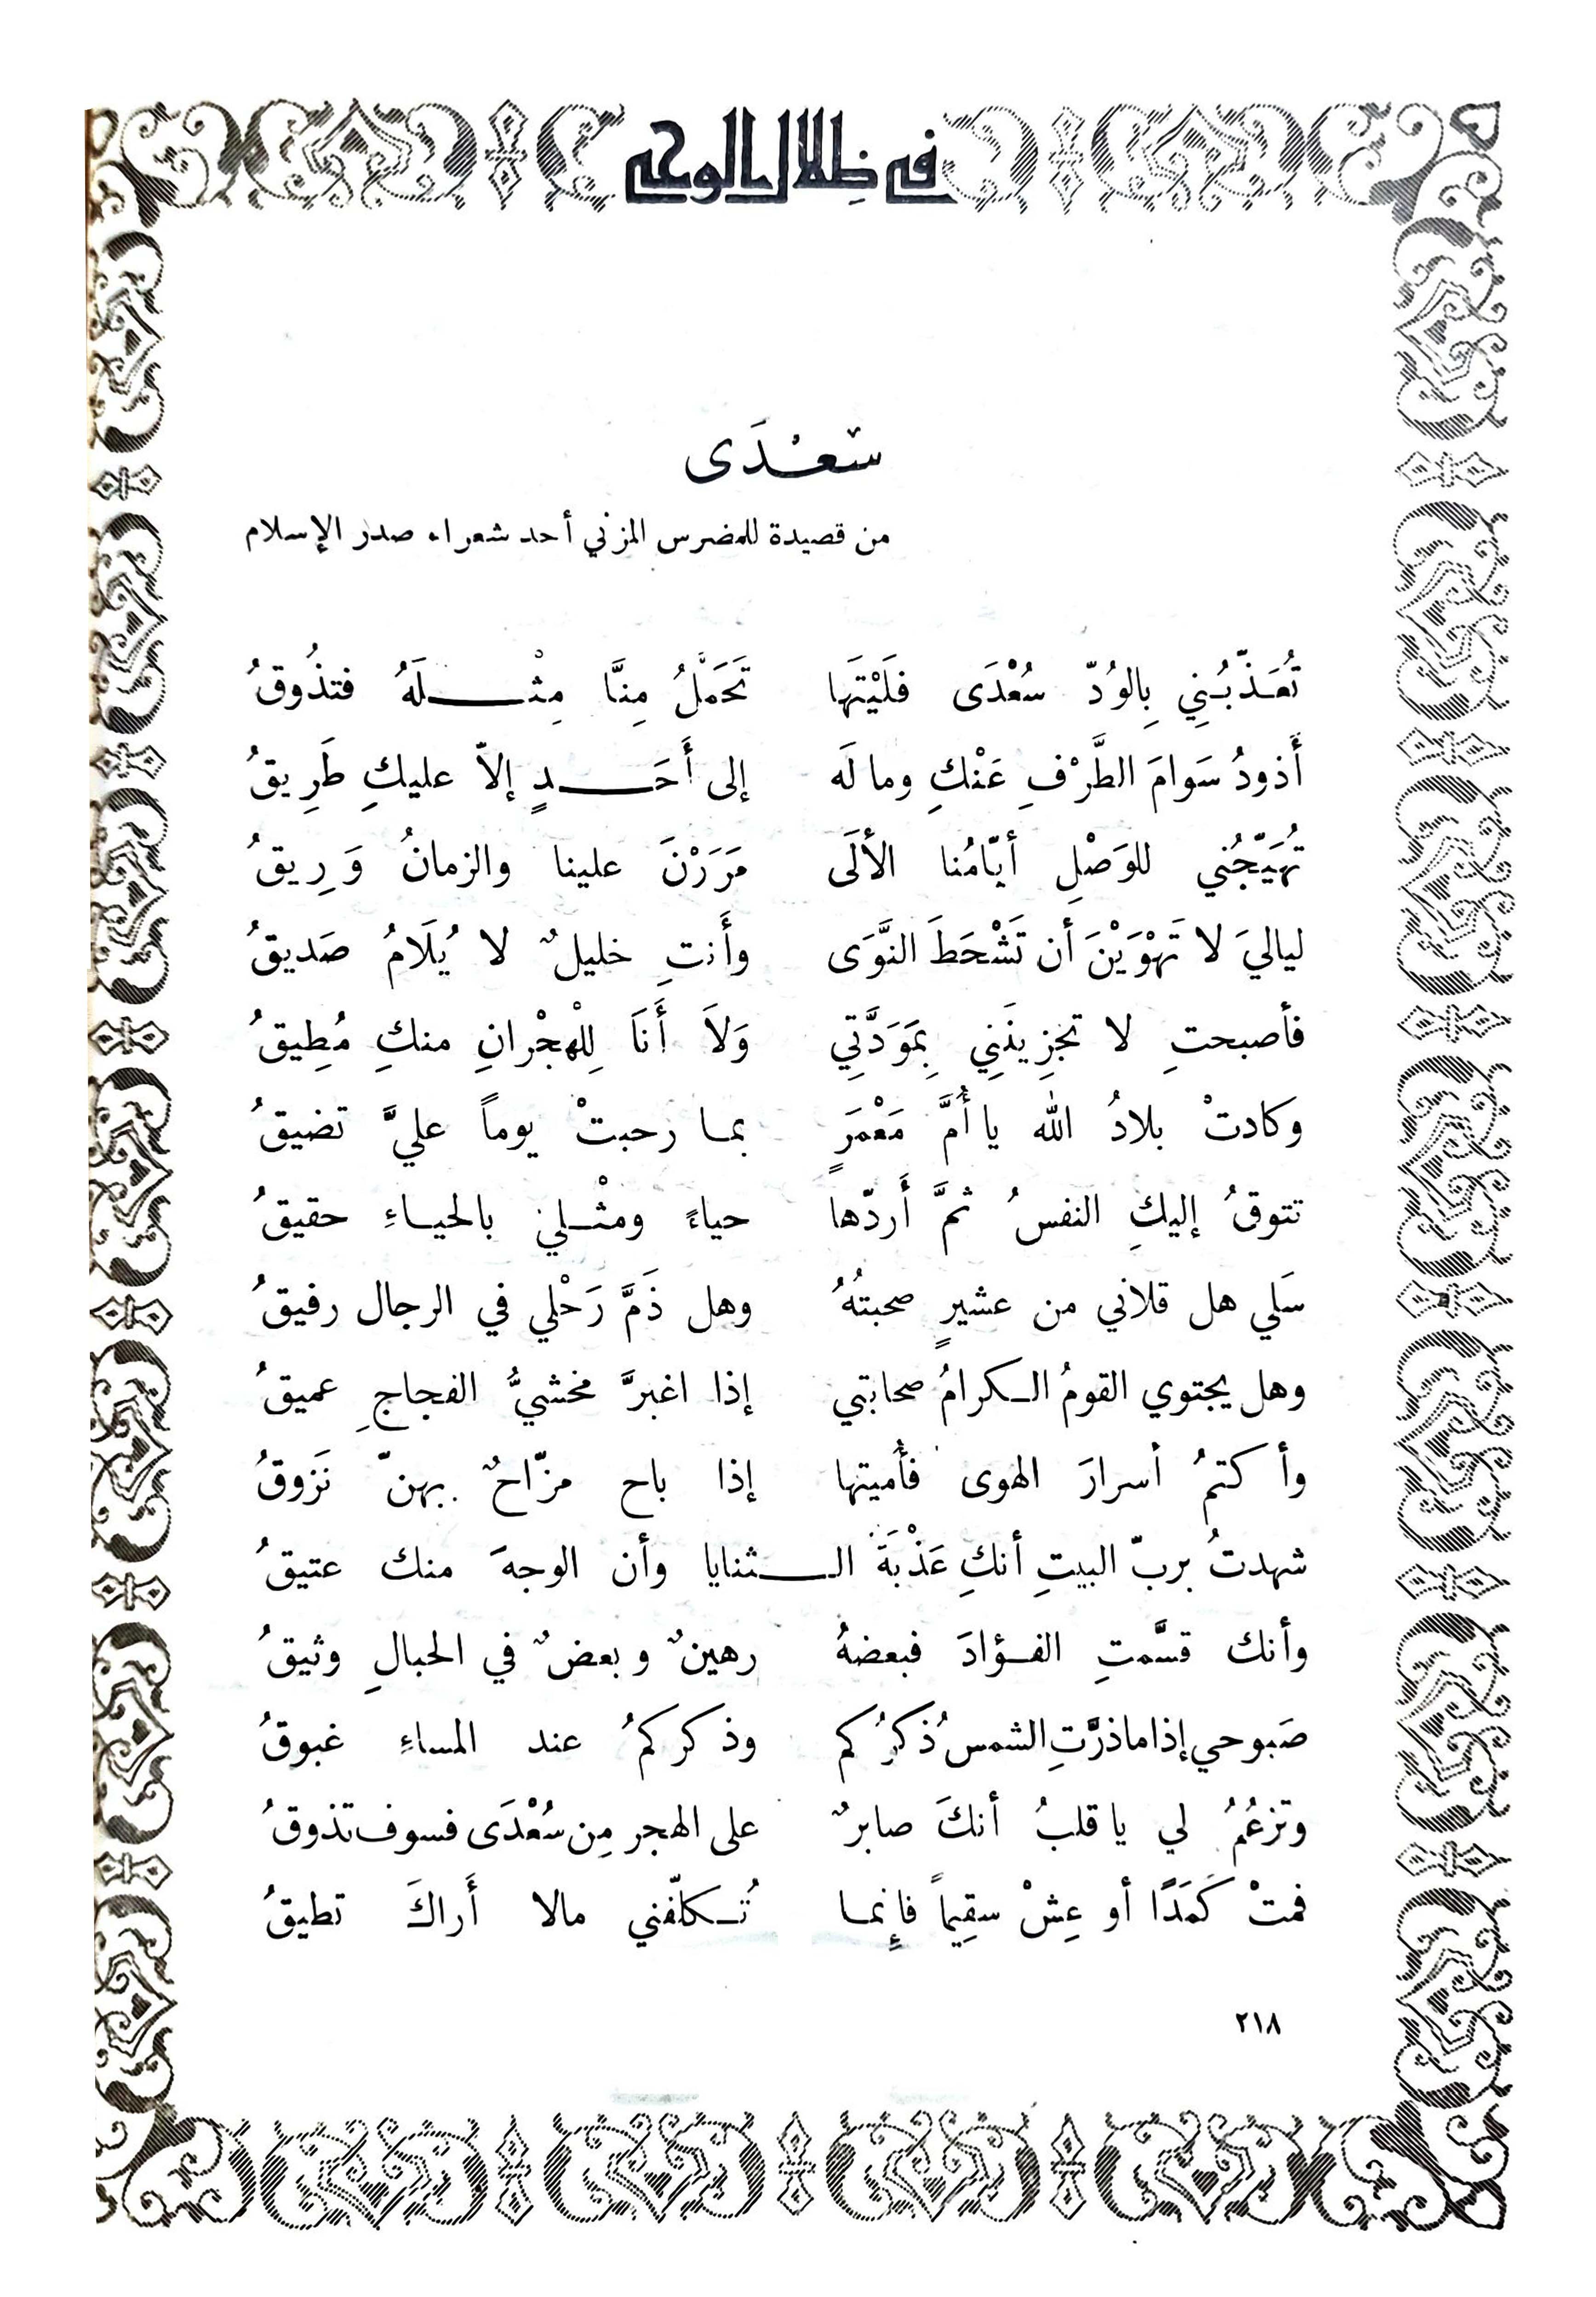 في ظلال الوحي
سَعْدَى
من قصيدة للمضرس المزني أحد شعراء صدر الإسلام
تُعَذّبُني بِالوُدّ سُعْدَى فَلَيْتَها تَحَمَّلُ مِنَّا مِثْلَهُ فتذُوقُ
أَذودُ سَوامَ الطَّرْفِ عَنْكِ وما لَه إلى أَحَدٍ إلاّ عليكِ طَرِيقُ
تُهَيّجُني للوَصْلِ أيّامُنا الألَى مَرَرْنَ علينا والزمانُ وَرِيقُ
لياليَ لا تَهْوَيْنَ أن تَشْحَطَ النَّوَى وأَنتِ خليلٌ لا يُلَامُ صَديقُ
فأصبحتِ لا تجزِينَنِي بِمَوَدَّتِي وَلاَ أَنَا لِلْهِجْرانِ منكِ مُطِيقُ
وكادتْ بلادُ الله يا أُمَّ مَعْمَرٍ بما رحبتْ يوماً عليَّ تضيقُ
تتوقُ إليكِ النفسُ ثمَّ أَردّها حياءً ومثْلي بالحياءِ حقيقُ
سَلي هل قلاني من عشيرٍ صحبتُهُ وهل ذَمَّ رَحْلي في الرجال رفيقُ
وهل يجتوي القومُ الكرامُ صحابتي إذا اغبرَّ مخشيُّ الفجاجِ عميقُ
وأكتمُ أسرارَ الهوى فأُميتها إذا باح مزّاحٌ بهنّ نَزوقُ
شهدتُ بربّ البيتِ أنكِ عَذْبَةَ الثنايا وأن الوجهَ منك عتيقُ
وأنك قسَّمتِ الفؤادَ فبعضهُ رهينٌ وبعضٌ في الحبالِ وثيقُ
صَبوحي إذا ما ذرَّتِ الشمسُ ذكرُكم وذكركمُ عند المساءِ غبوقُ
وتزعُمُ لي يا قلبُ أنكَ صابرٌ على الهجر مِن سُعْدَى فسوف تذوقُ
فمتْ كَمَدًا أو عِشْ سقِيماً فإنما تُكلّفني مالا أَراكَ تطيقُ
٢١٨